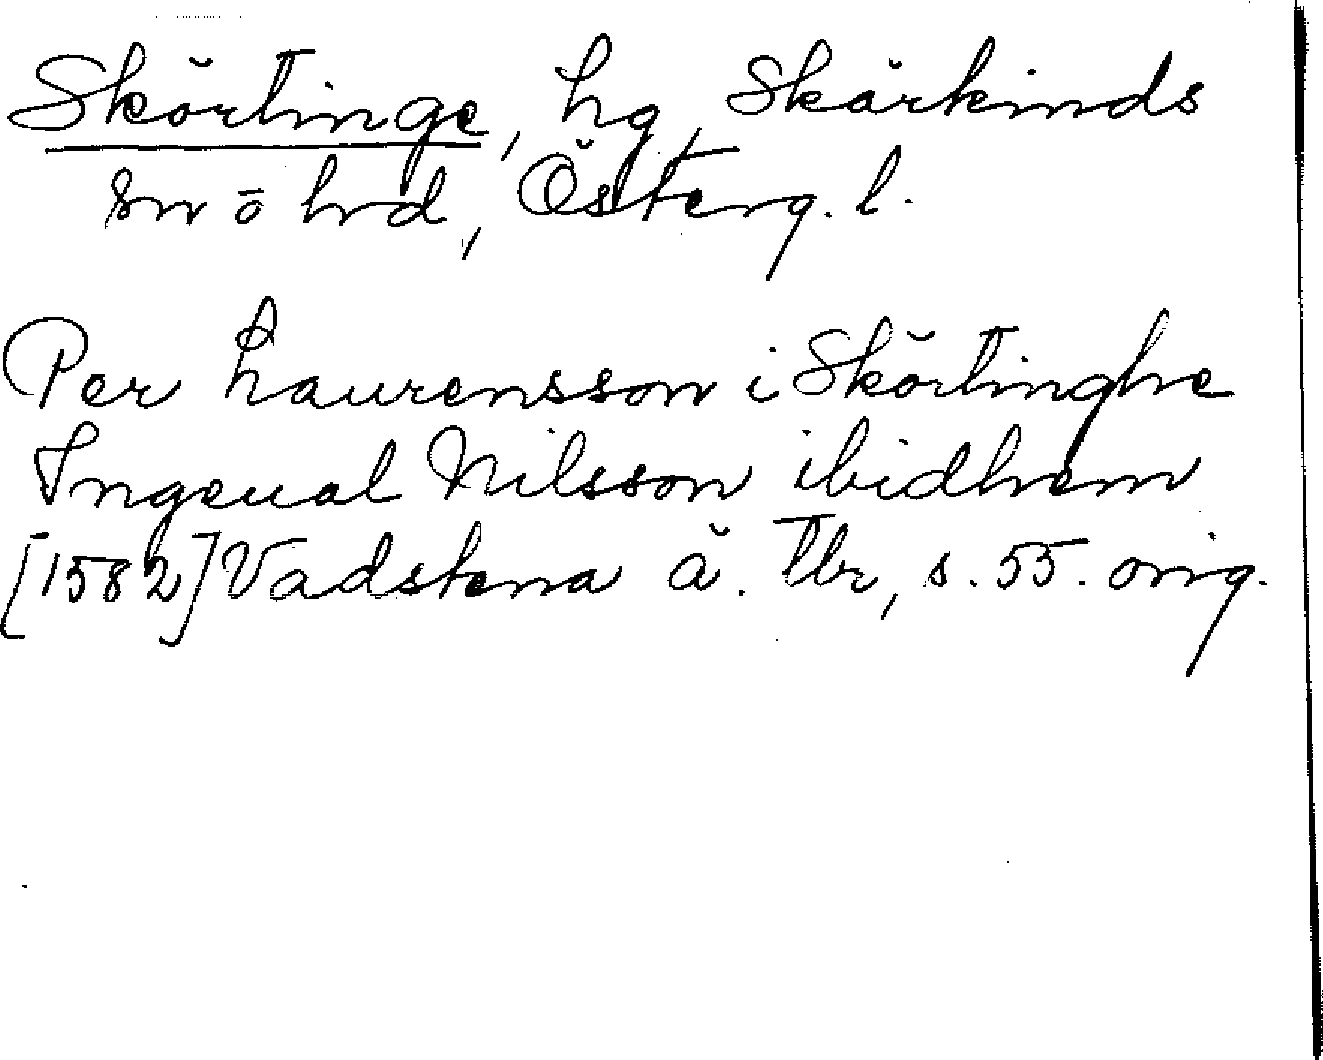 Skörtinge, hg, Skärkinds
sn ō hrd, Österg. l.
Per Laurensson i Skörtinghe
Ingeual Nilsson ibidhem
[1582] Vadstena ä. Tbr, s. 55. orig.